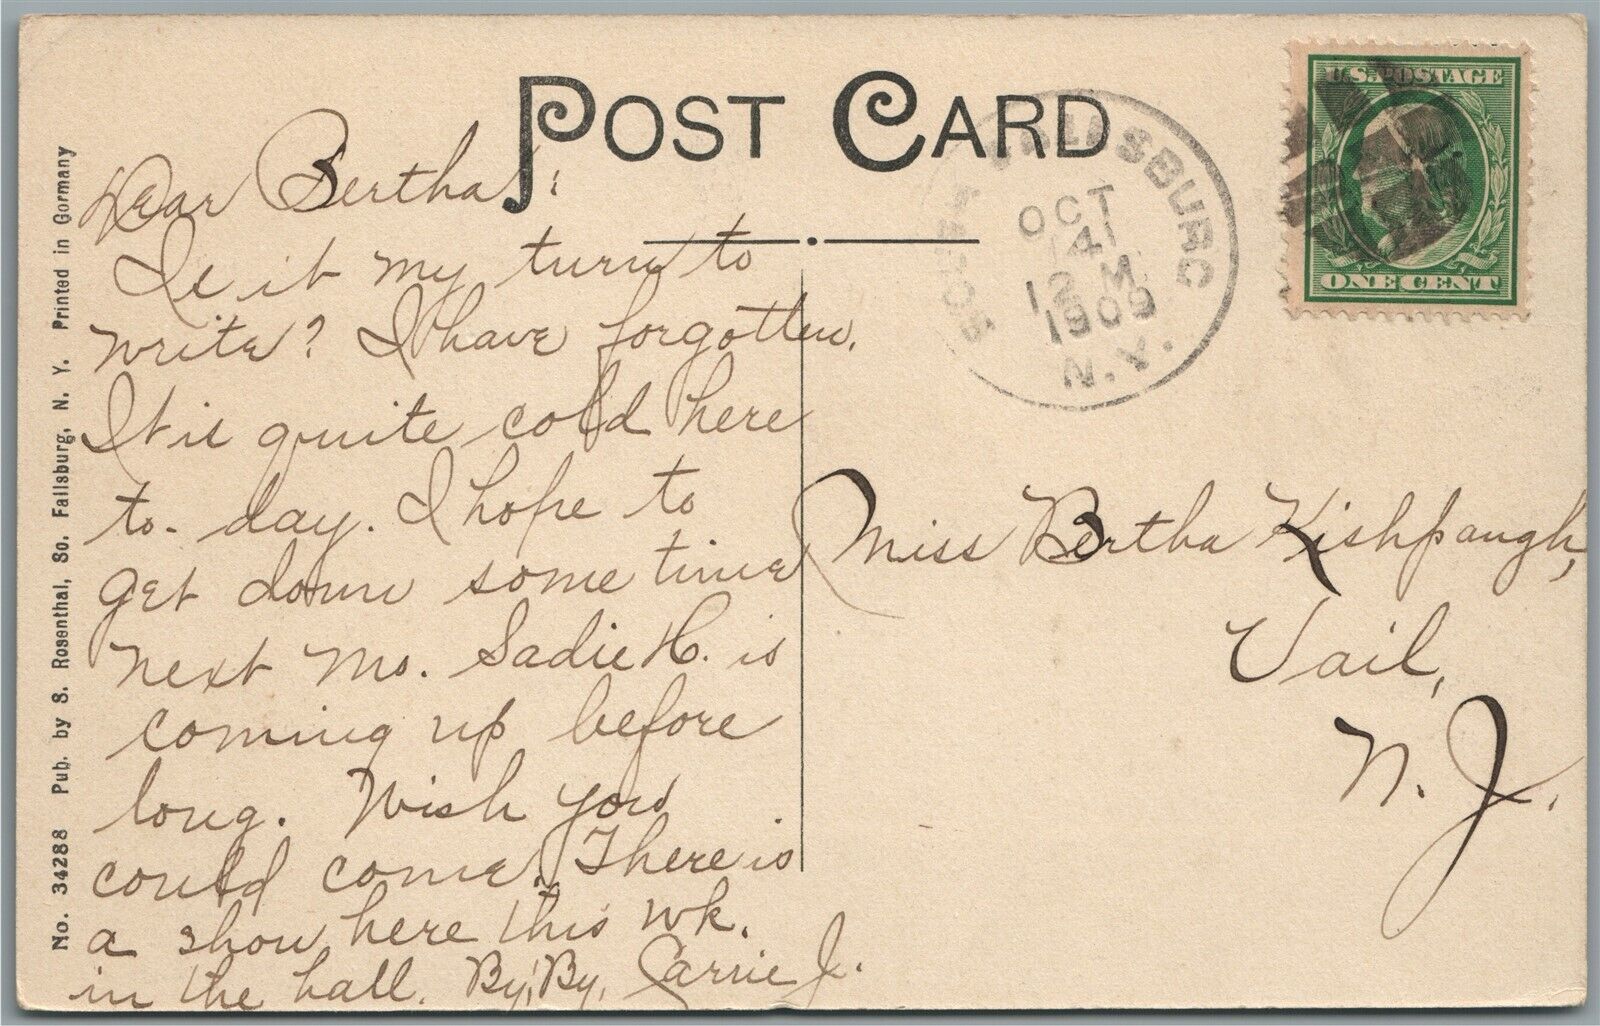 POST CARD
No. 34288 Pub. by S. Rosenthal, So. Fallsburg, N. Y. Printed in Germany
Dear Bertha:
Is it my turn to
write? I have forgotten.
It is quite cold here
to-day. I hope to
get down some time
next mo. Sadie H. is
coming up before
long. Wish you
could come. There is
a show here this wk.
in the hall. By, By, Carrie J.
SOUTH FALLSBURG
OCT
14
12 M
1909
N.Y.
U.S. POSTAGE
ONE CENT
Miss Bertha Kishpaugh,
Vail,
N. J.